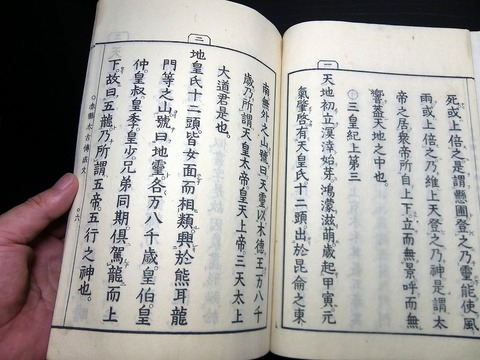 死或上倍之。是謂懸圃。登之乃靈。能使風
雨或上倍之。乃維上天。登之乃神。是謂太
帝之居。衆帝所自上下。立而無景。呼而無
響。蓋天地之中也。
三皇紀上第三
一
天地初立。溟涬始芽。鴻蒙滋萌。歳起甲寅。元
氣肇啓。有天皇氏十二頭。出於昆侖之東
南無外之山。號曰天靈。以木德王万八千
歳。乃所謂天皇太帝。皇天上帝三天太上
大道君是也。
二
地皇氏十二頭。皆女面而相類。興於熊耳龍
門等之山。號曰地靈。各万八千歳。皇伯。皇
仲。皇叔。皇季。皇少。兄弟同期。俱駕龍而上
下。故曰五龍。乃所謂五帝。五行之神也。
赤縣太古傳成文 ○六